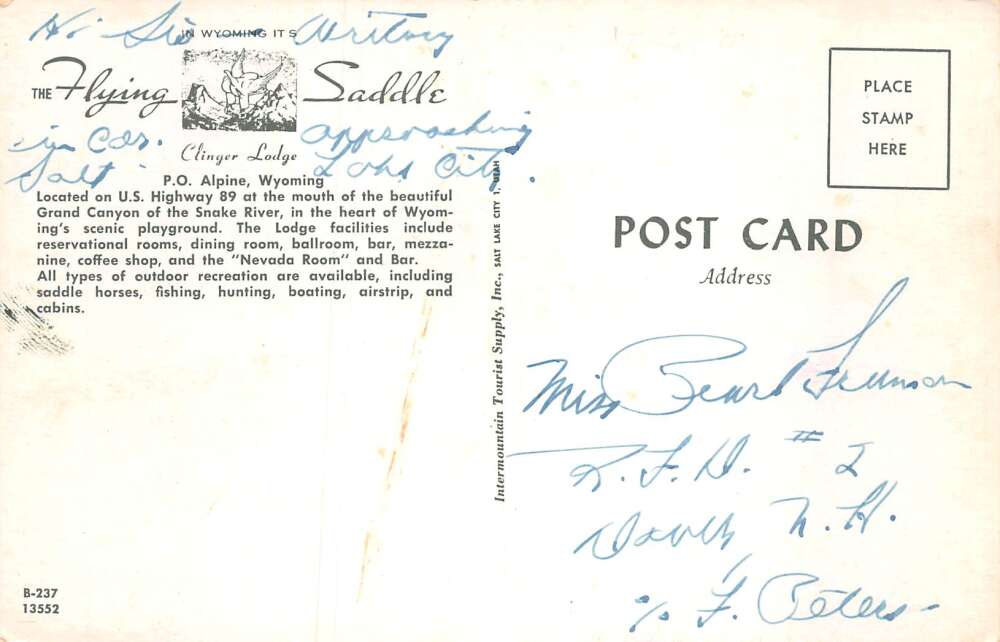 Hi Sis Writing
IN WYOMING ITS
THE Flying Saddle
in car. approaching
Clinger Lodge
Salt Lake City.
P.O. Alpine, Wyoming
Located on U.S. Highway 89 at the mouth of the beautiful
Grand Canyon of the Snake River, in the heart of Wyom-
ing's scenic playground. The Lodge facilities include
reservational rooms, dining room, ballroom, bar, mezza-
nine, coffee shop, and the "Nevada Room" and Bar.
All types of outdoor recreation are available, including
saddle horses, fishing, hunting, boating, airstrip, and
cabins.
B-237
13552
Intermountain Tourist Supply, Inc., SALT LAKE CITY 1, UTAH
PLACE
STAMP
HERE
POST CARD
Address
Miss Pearl
R.F.D. # 2
Dover N.H.
% F. Peters